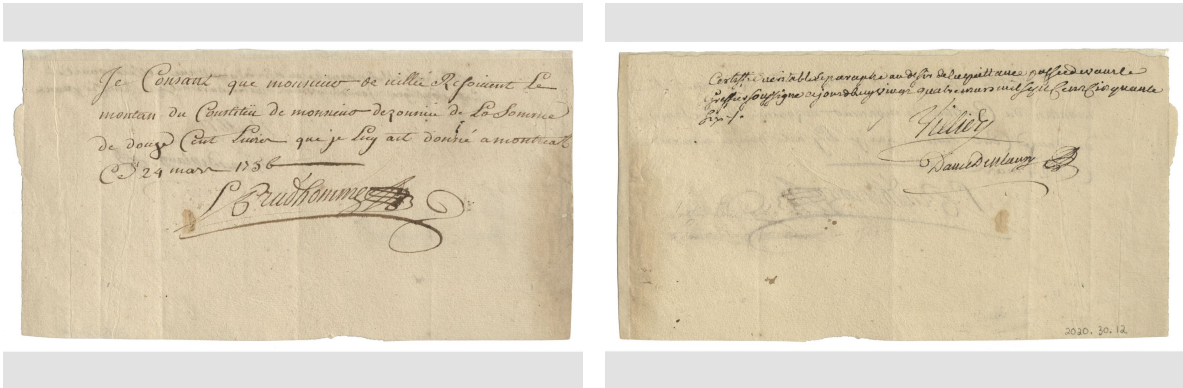 Je Consant que monsieur de villié Resoivent Le
montan du Constitüe de monsieur de
de La Somme
de douze Cent Livres que je Luy ait donné a montreal
Ce 24 mars 1756
Prudhomme
Certiffié veritable et paraphé au desir de la quittance passée devant le
Greffier soussigné ce jourdhuy vingt quatre mars mil sept Cent Cinquante
six ./.
Villiers
Danré De Blanzy
2020.30.12